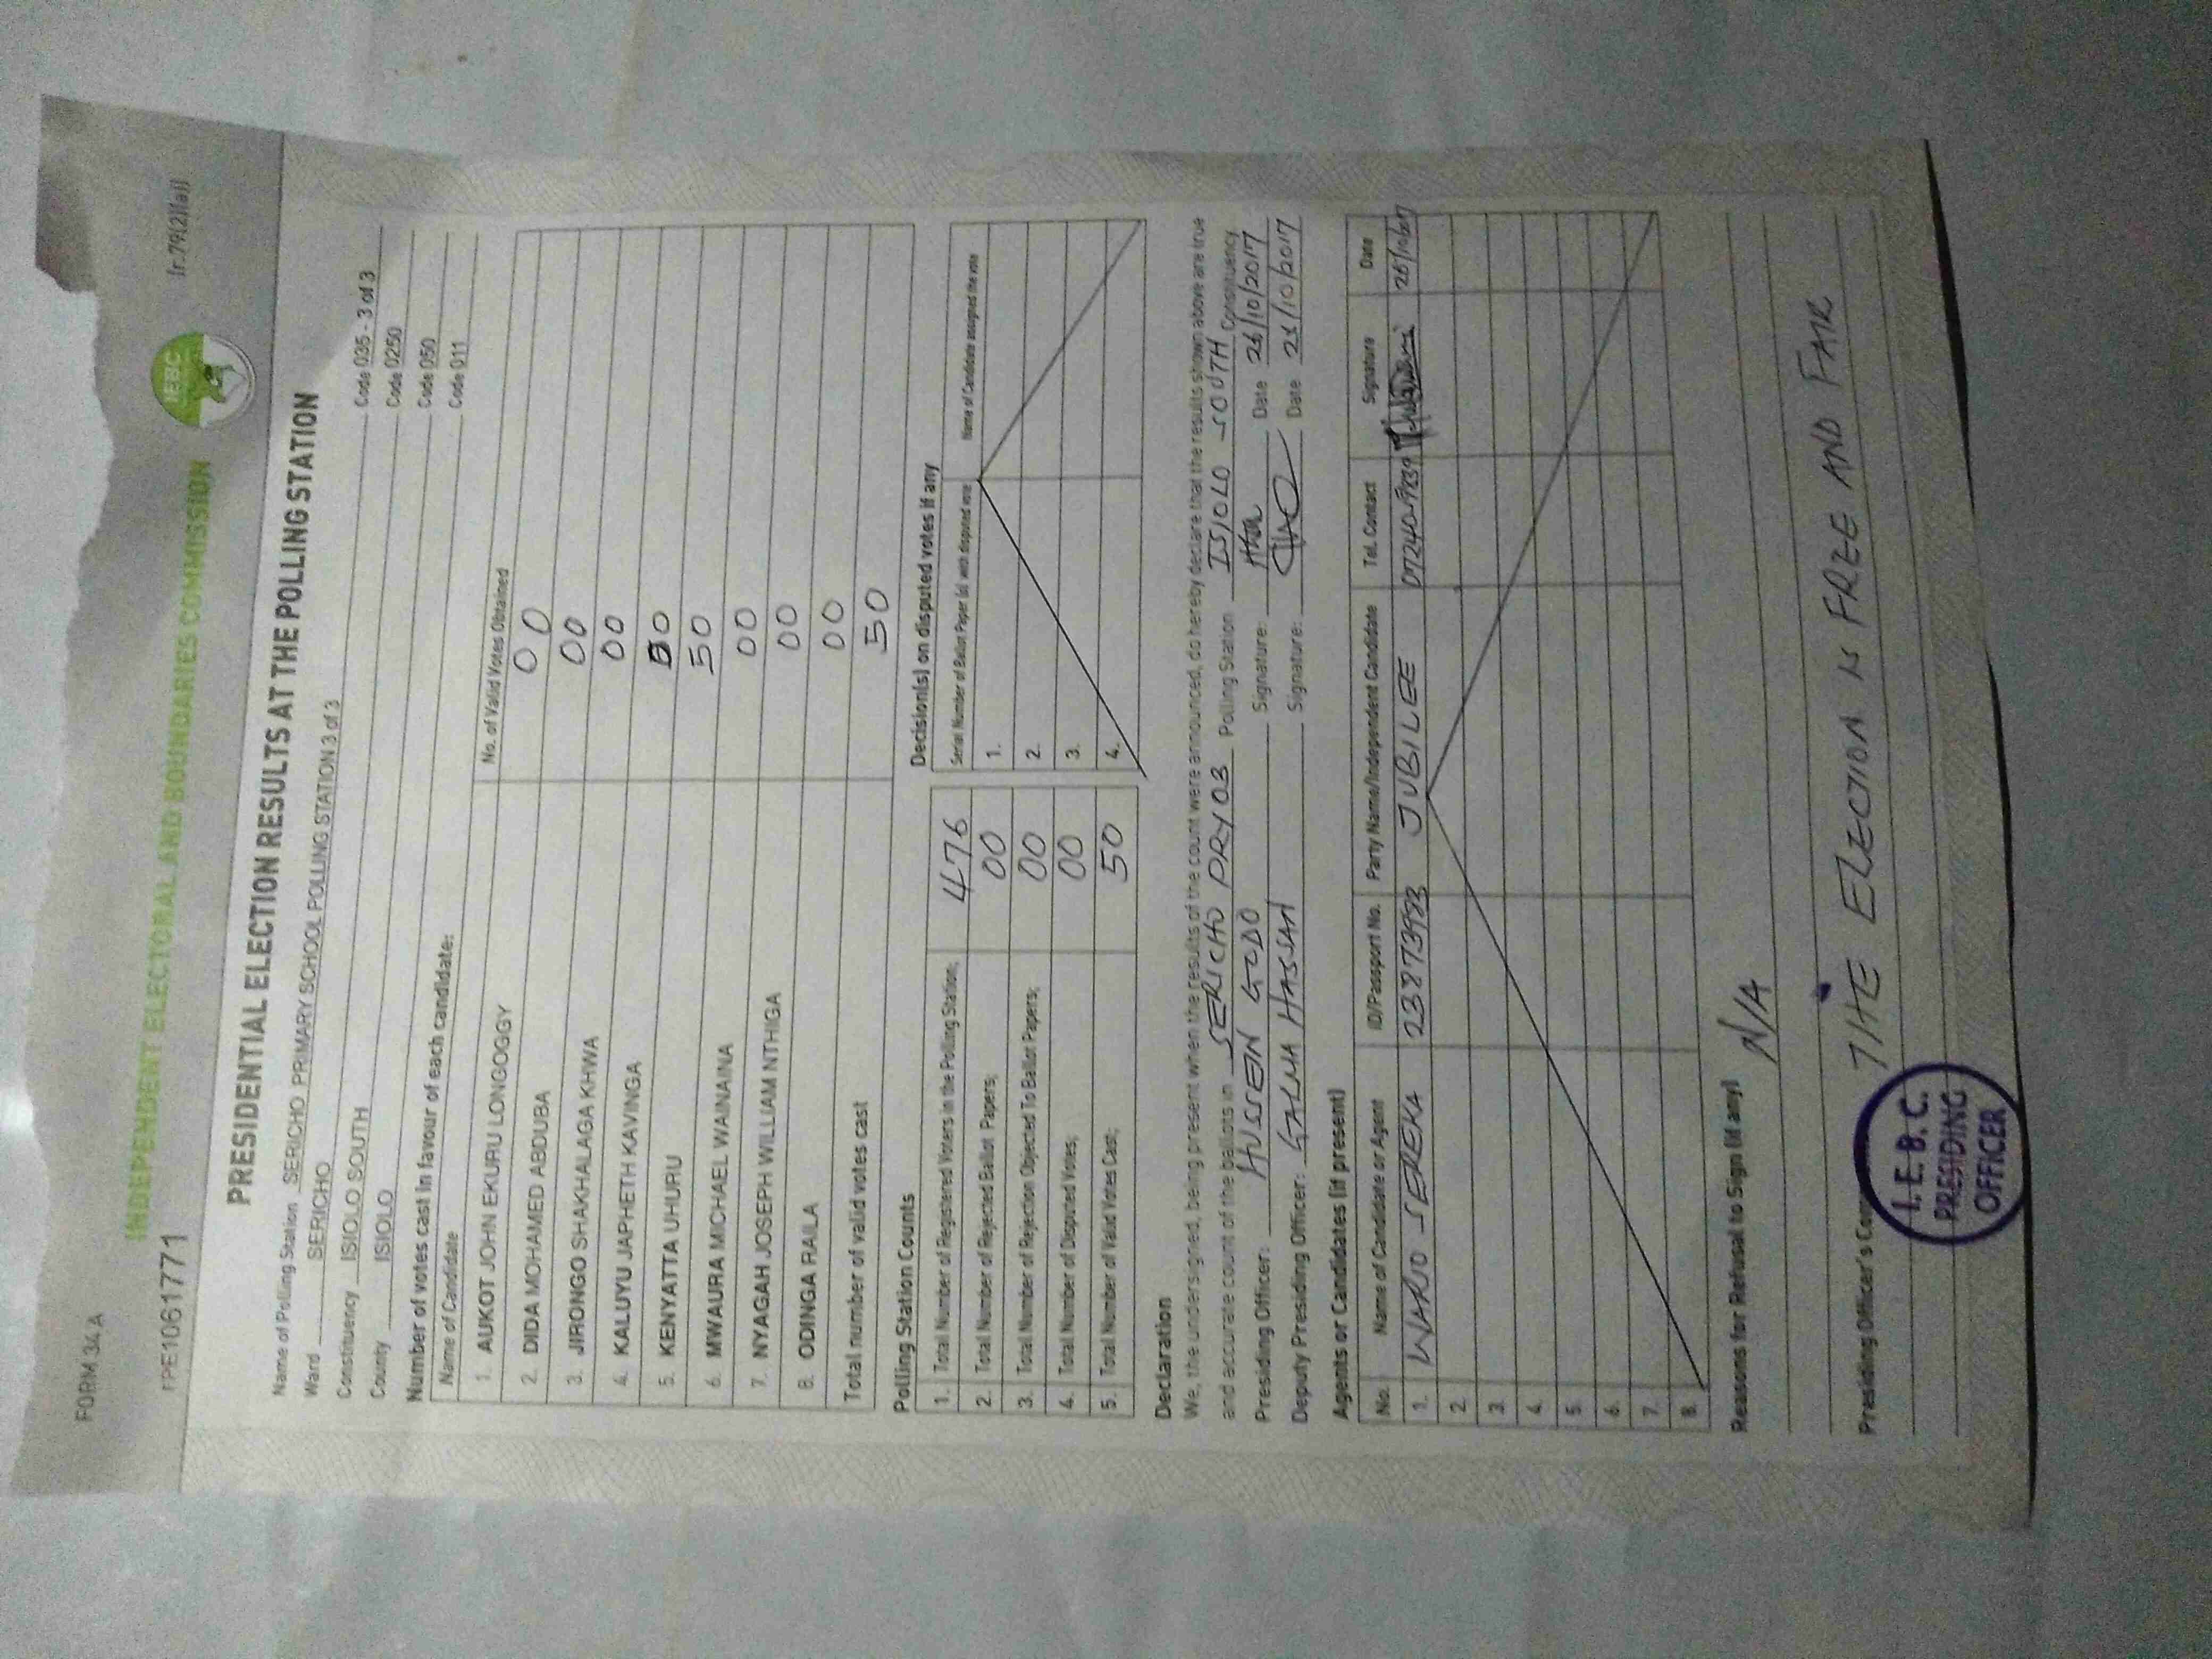 FORM 34A
INDEPENDENT ELECTORAL AND BOUNDARIES COMMISSION
IEBC
(r.79(2)(a))
FPE1061771
PRESIDENTIAL ELECTION RESULTS AT THE POLLING STATION
Name of Polling Station SERICHO PRIMARY SCHOOL POLLING STATION 3 of 3 Code 035 - 3 of 3
Ward SERICHO Code 0250
Constituency ISIOLO SOUTH Code 050
County ISIOLO Code 011
Number of votes cast in favour of each candidate:
Name of Candidate No. of Valid Votes Obtained
1. AUKOT JOHN EKURU LONGOGGY 00
2. DIDA MOHAMED ABDUBA 00
3. JIRONGO SHAKHALAGA KHWA 00
4. KALUYU JAPHETH KAVINGA
5. KENYATTA UHURU 50
6. MWAURA MICHAEL WAINAINA 00
7. NYAGAH JOSEPH WILLIAM NTHIGA 00
8. ODINGA RAILA 00
Total number of valid votes cast 50
Polling Station Counts
1. Total Number of Registered Voters in the Polling Station; 476
2. Total Number of Rejected Ballot Papers; 00
3. Total Number of Rejection Objected To Ballot Papers; 00
4. Total Number of Disputed Votes; 00
5. Total Number of Valid Votes Cast; 50
Decision(s) on disputed votes if any
Serial Number of Ballot Paper (s) with disputed vote Name of Candidate assigned the vote
1.
2.
3.
4.
Declaration
We, the undersigned, being present when the results of the count were announced, do hereby declare that the results shown above are true
and accurate count of the ballots in SERICHO PRY 03 Polling Station ISIOLO SOUTH Constituency
Presiding Officer: HUSSEN GODO Signature: Date 26/10/2017
Deputy Presiding Officer: GALMA HASSAN Signature: Date 26/10/2017
Agents or Candidates (if present)
No. Name of Candidate or Agent ID/Passport No. Party Name/Independent Candidate Tel. Contact Signature Date
1. WARIO SEREKA JUBILEE 26/10/2017
2.
3.
4.
5.
6.
7.
8.
Reasons for Refusal to Sign (if any)
N/A
Presiding Officer's THE ELECTION IS FREE AND FAIR
I.E.B.C.
PRESIDING
OFFICER